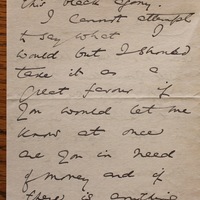 this black agony.
I cannot attempt
to say what I
would but I should
take it as a
great favour if
you would let me
know at once
are you in need
of money and if
there is anything